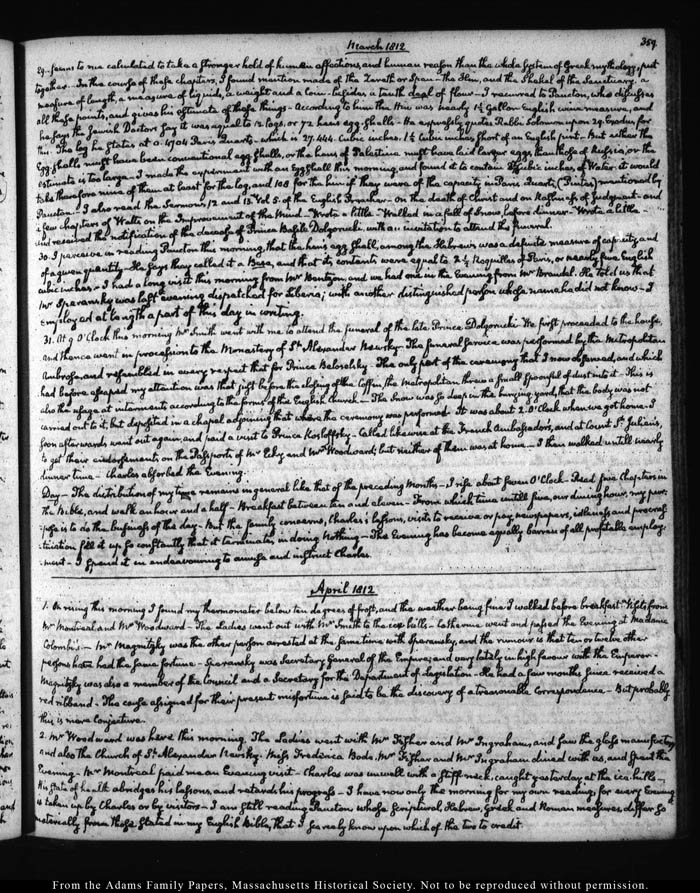 March 1812
359.
29. seems to me calculated to take a stronger hold of human affections, and human reason than the whole System of Greek mythology, put
together. In the course of these chapters, I found mention made of the Zereth or Span — the Hin, and the Shekel of the Sanctuary, a
measure of length, a measure of liquids, a weight and a Coin — besides a tenth deal of flour — I recurred to Paucton, who discusses
all these points, and gives his estimate of these things — According to him the Hin was nearly 1½ Gallon English wine measure, and
he says the Jewish Doctors say it was equal to 12 logs, or 72 hens egg shells — He expressly quotes Rabbi Solomon upon 29. Exodus for
this. The log he states at 0.4704 Paris Quarts — which is 27.444. Cubic inches. 1½ Cubic inches short of an English pint — But either the
Egg shells must have been conventional egg shells, or the hens of Palestine must have laid larger eggs than those of Russia, or the
estimate is too large. I made the experiment with an Egg Shell this morning, and found it to contain Cubic inches of Water. it would
take therefore nine of them at least for the log, and 108 for the hin if they were of the capacity in Paris Quarts (Pintes) mentioned by
Paucton. I also read the Sermons, 12 and 13. Vol. 5. of the English Preacher — on the death of Christ and on Rashness of Judgment — and
a few chapters of Watts, on the Improvement of the Mind — Wrote a little — Walked in a fall of Snow, before dinner — Wrote a little —
and received the notification of the decease of Prince Basile Dolgorucki with an invitation to attend the funeral.
30. I perceive in reading Paucton this morning, that the hen's egg shell, among the Hebrews was a definite measure of capacity, and
of a given quantity. He says they called it a Beza, and that its contents were equal to 2½ Roquilles of Paris, or nearly five English
cubic inches — I had a long visit this morning from Mr Navtzen, and we had one in the Evening from Mr Brandel. He told us that
Mr Speransky was last evening dispatched for Siberia; with another distinguished person whose name he did not know — I
employed at length a part of this day in writing.
31. At 9 O'Clock this morning Mr Smith went with me to attend the funeral of the late Prince Dolgorucki. We first proceeded to the house,
and thence went in procession to the Monastery of St Alexander Newsky. The funeral service was performed by the Metropolitan
Ambrose, and resembled in every respect that for Prince Beloselsky. The only part of the ceremony that I now observed, and which
had before escaped my attention was that just before the closing of the Coffin, the Metropolitan threw a small spoonful of dust into it. This is
also the usage at interments according to the forms of the English Church — The Snow was so deep in the burying yards, that the body was not
carried out to it, but deposited in a chapel adjoining that where the ceremony was performed. It was about 2. O'Clock when we got home. I
soon afterwards went out again, and paid a visit to Prince Kosloffsky. Called likewise at the French Ambassadors, and at Count St Julien's,
to get their endorsements on the Passports of Mr and Mr Woodward; but neither of them was at home — I then walked untill nearly
dinner time — Charles absorbed the Evening.
Day — The distribution of my time remains in general like that of the preceding Months — I rise about seven O'Clock — Read five Chapters in
the Bible, and walk an hour and a half — Breakfast between ten and eleven — From which time untill five, our dining hour, my pur-
-pose is to do the business of the day — But the family concerns, Charles's lessons, visits to receive or pay, newspapers, idleness and procras-
-tination fill it up so constantly that it terminates in doing Nothing — The Evening has become equally barren of all profitable employ-
-ment — I spend it in endeavouring to amuse and instruct Charles.
April 1812
1. On rising this morning I found my thermometer below ten degrees of frost, and the weather being fine I walked before breakfast. Visits from
Mr Montreal and Mr Woodward — The Ladies went out with Mr Smith to the ice hills — Catherine went and passed the Evening at Madame
Colombi's — Mr Magnitzky was the other person arrested at the same time with Speransky, and the rumour is that ten or twelve other
persons have had the same fortune — Speransky was Secretary General of the Empire, and very lately in high favour with the Emperor —
Magnitzky was also a member of the Council and a Secretary for the Department of Legislation — He had a few months since received a
red ribband — The cause assigned for their present misfortune is said to be the discovery of a treasonable Correspondence — But probably
this is mere Conjecture.
2. Mr Woodward was here this morning. The Ladies went with Mr Fisher and Mr Ingraham, and saw the glass manufactory
and also the Church of St Alexander Newsky. Miss Frederica Bode. Mr Fisher and Mr Ingraham dined with us, and spent the
Evening — Mr Montreal paid me an Evening visit — Charles was unwell with a stiff neck, caught yesterday at the ice hills —
His state of health abridges his lessons, and retards his progress — I have now only the morning for my own reading; for every Evening
is taken up by Charles or by visitors — I am still reading Paucton, whose Scriptural, Hebrew, Greek and Roman measures, differ so
materially from those stated in my English Bible, that I scarcely know upon which of the two to credit
From the Adams Family Papers, Massachusetts Historical Society. Not to be reproduced without permission.